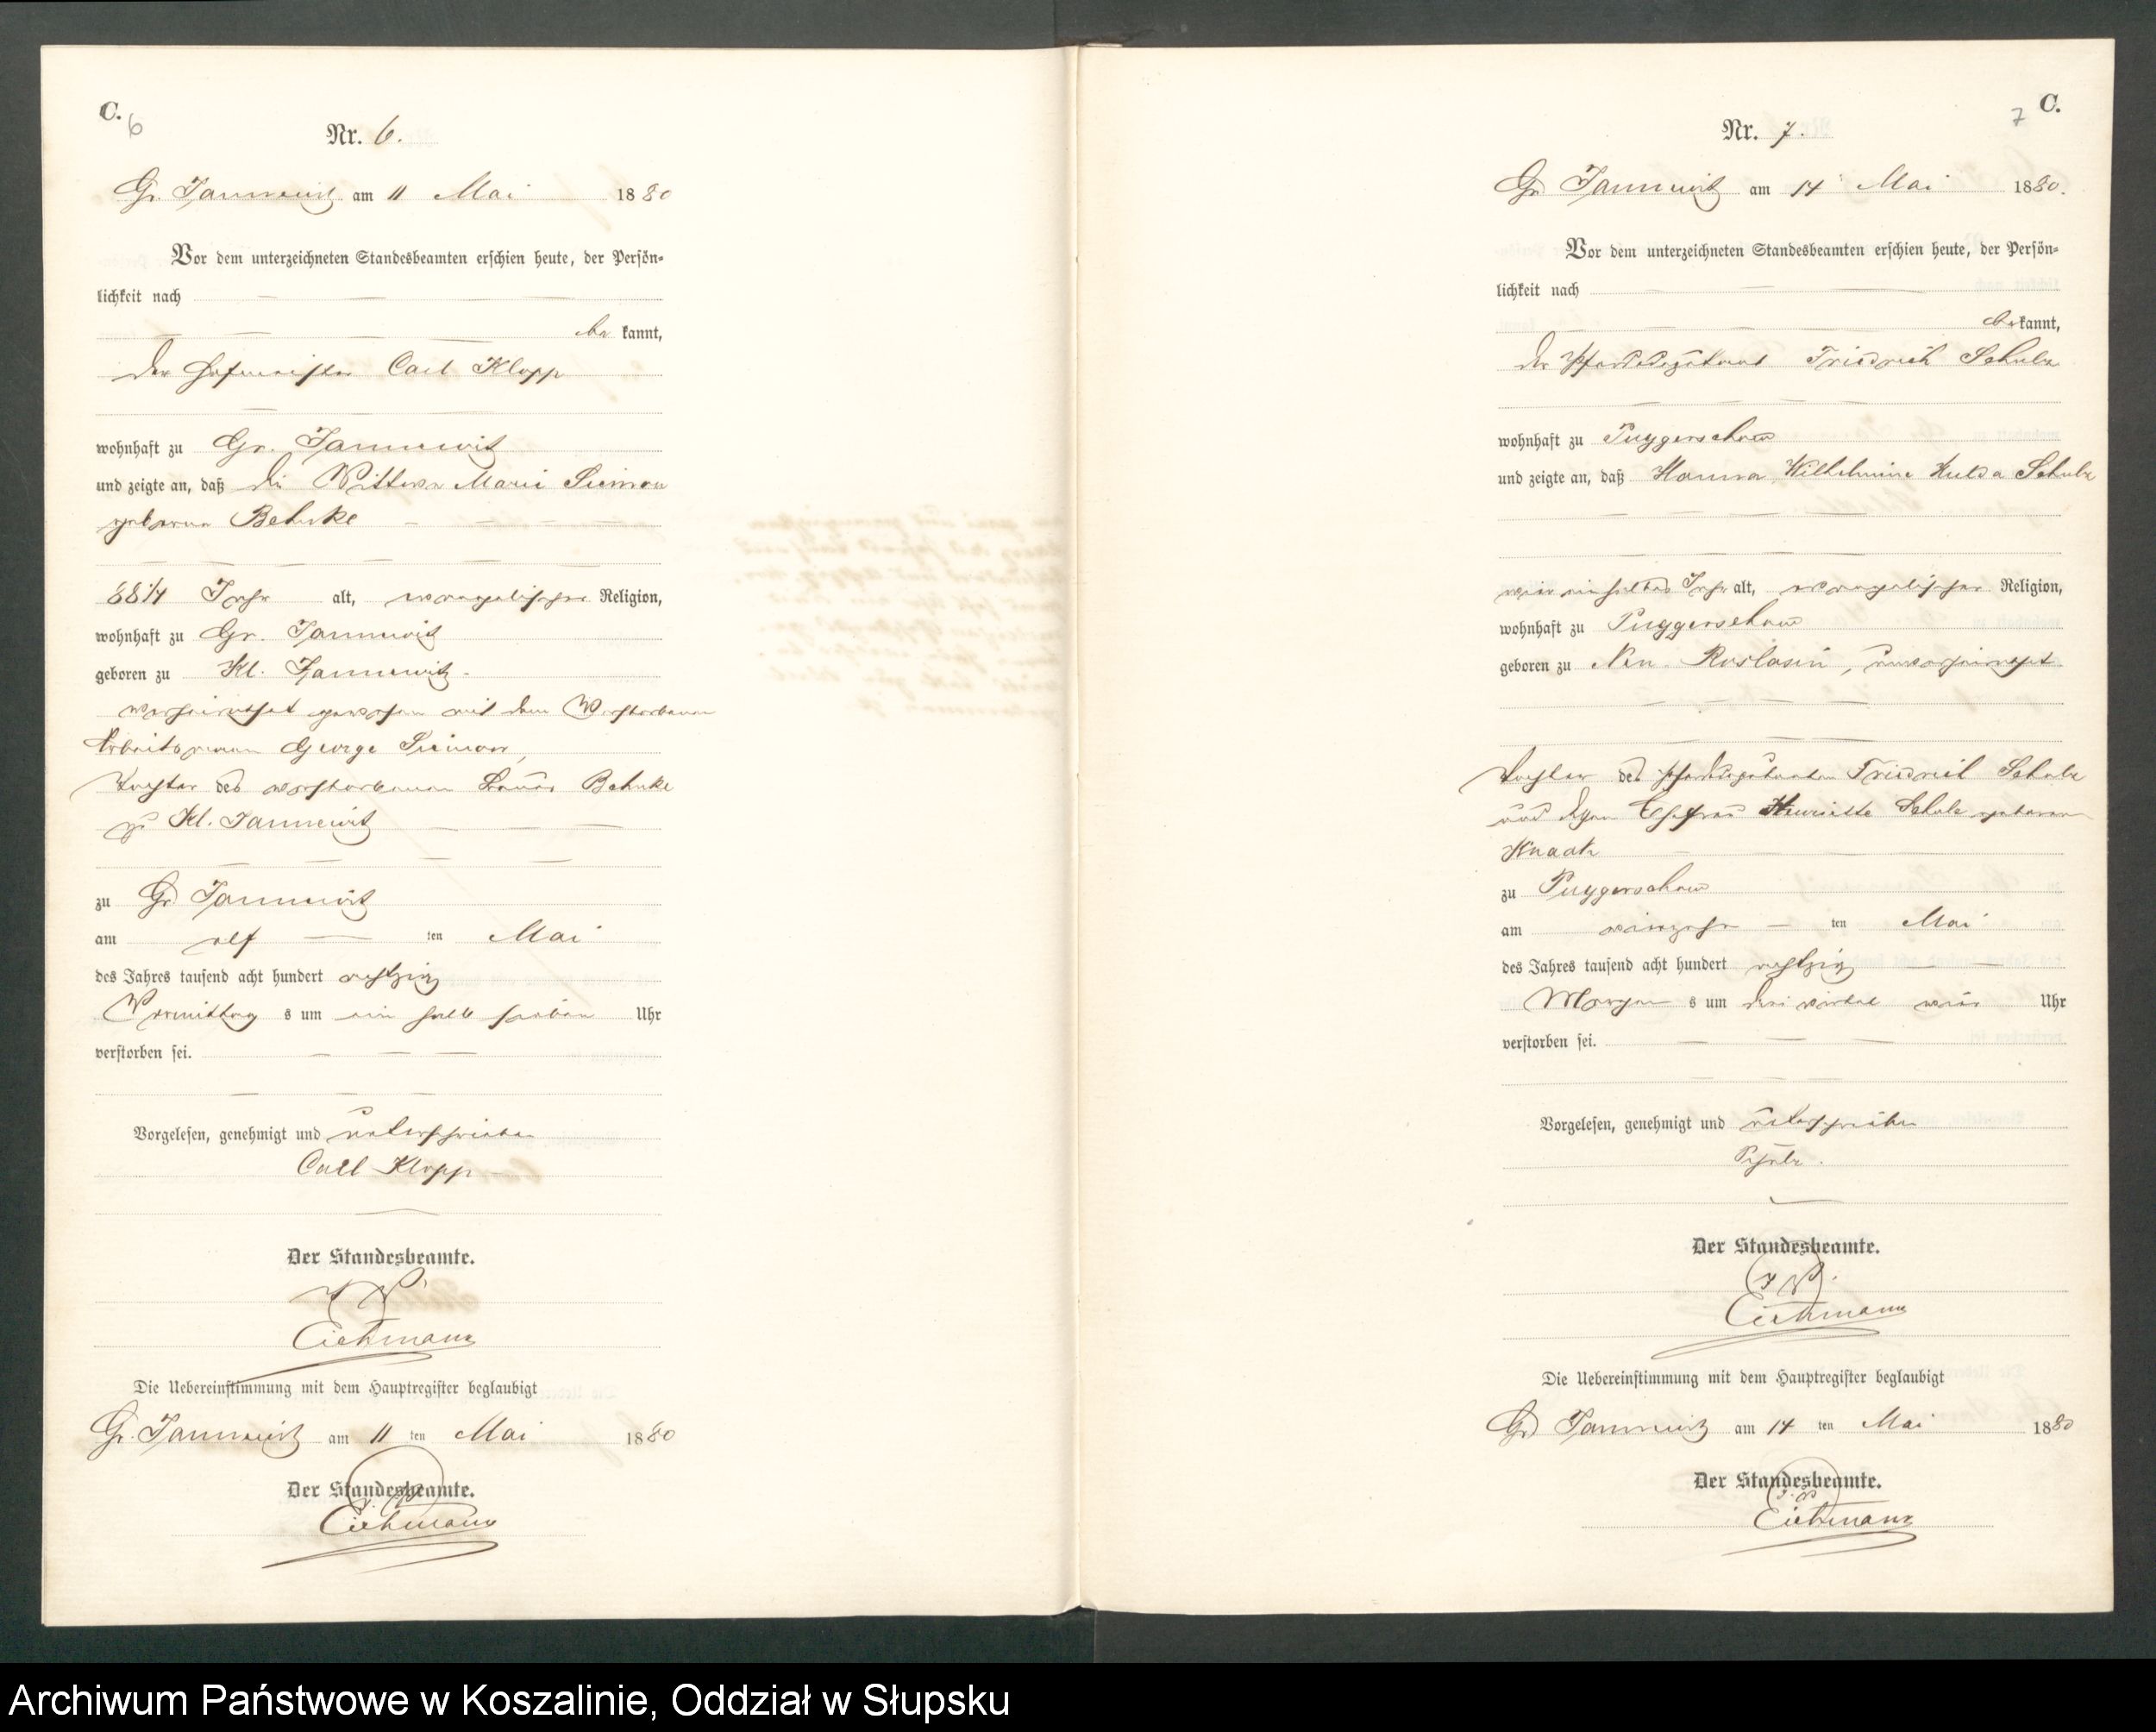 C.
6
Nr. 6.
Gr. Jannewitz am 11 Mai 1880
Vor dem unterzeichneten Standesbeamten erschien heute, der Persön-
lichkeit nach
be kannt,
der Hofmeister Carl Klopp
wohnhaft zu Gr. Jannewitz
und zeigte an, daß die Wittwe Marie
geborene Behnke
88 1/4 Jahr alt, evangelischer Religion,
wohnhaft zu Gr. Jannewitz
geboren zu Kl. Jannewitz
verheirathet gewesen mit dem Verstorbenen
Arbeitsmann George
Tochter des verstorbenen Behnke
zu Kl. Jannewitz
zu Gr Jannewitz
am elf ten Mai
des Jahres tausend acht hundert achtzig
Vormittag s um ein halb sieben Uhr
verstorben sei.
Vorgelesen, genehmigt und unterschrieben
Carl Klopp
Der Standesbeamte.
J. V.
Eichmann
Die Uebereinstimmung mit dem Hauptregister beglaubigt
Gr. Jannewitz am 11 ten Mai 1880
Der Standesbeamte.
J. V.
Eichmann
C.
7
Nr. 7.
Gr Jannewitz am 14 Mai 1880.
Vor dem unterzeichneten Standesbeamten erschien heute, der Persön-
lichkeit nach
be kannt,
der Friedrich Schulz
wohnhaft zu Puggerschow
und zeigte an, daß Hanna Wilhelmine Hulda Schulz
alt, evangelischer Religion,
wohnhaft zu Puggerschow
geboren zu Neu Roslasin, unverheirathet
Tochter des Friedrich Schulz
und dessen Ehefrau Henriette Schulz geborene
Knaak
zu Puggerschow
am vierzehn ten Mai
des Jahres tausend acht hundert achtzig
Morgen s um drei viertel vier Uhr
verstorben sei.
Vorgelesen, genehmigt und unterschrieben
Schulz.
Der Standesbeamte.
J. V.
Eichmann
Die Uebereinstimmung mit dem Hauptregister beglaubigt
Gr Jannewitz am 14 ten Mai 1880
Der Standesbeamte.
J. V.
Eichmann
Archiwum Państwowe w Koszalinie, Oddział w Słupsku